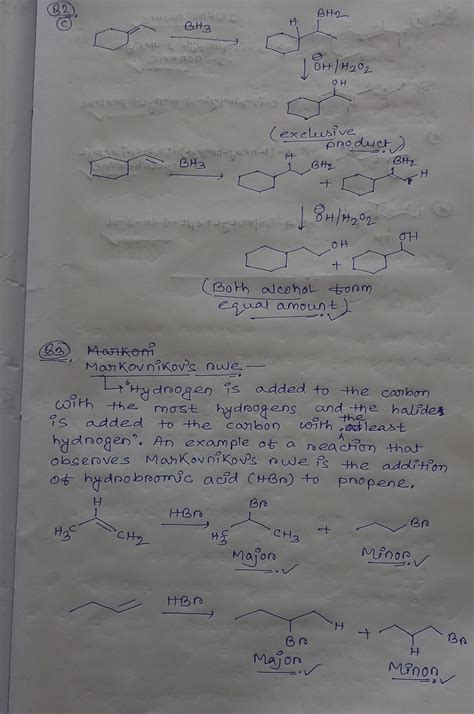 Q2.
(C)
BH3
H BH2
⊖OH/H2O2
OH
(exclusive
product) ✓
BH3
H BH2 + BH2 H
⊖OH/H2O2
OH + OH
(Both alcohol form
equal amount) ✓
Q3. Markoni
Markovnikov's rule —
→ "Hydrogen is added to the carbon
with the most hydrogens and the halides
is added to the carbon with the least
hydrogen". An example of a reaction that
observes Markovnikov's rule is the addition
of hydrobromic acid (HBr) to propene.
H H3C CH2 HBr Br H3C CH3 + Br
Major ✓ Minor ✓
HBr Br H + H Br
Major ✓ Minor ✓